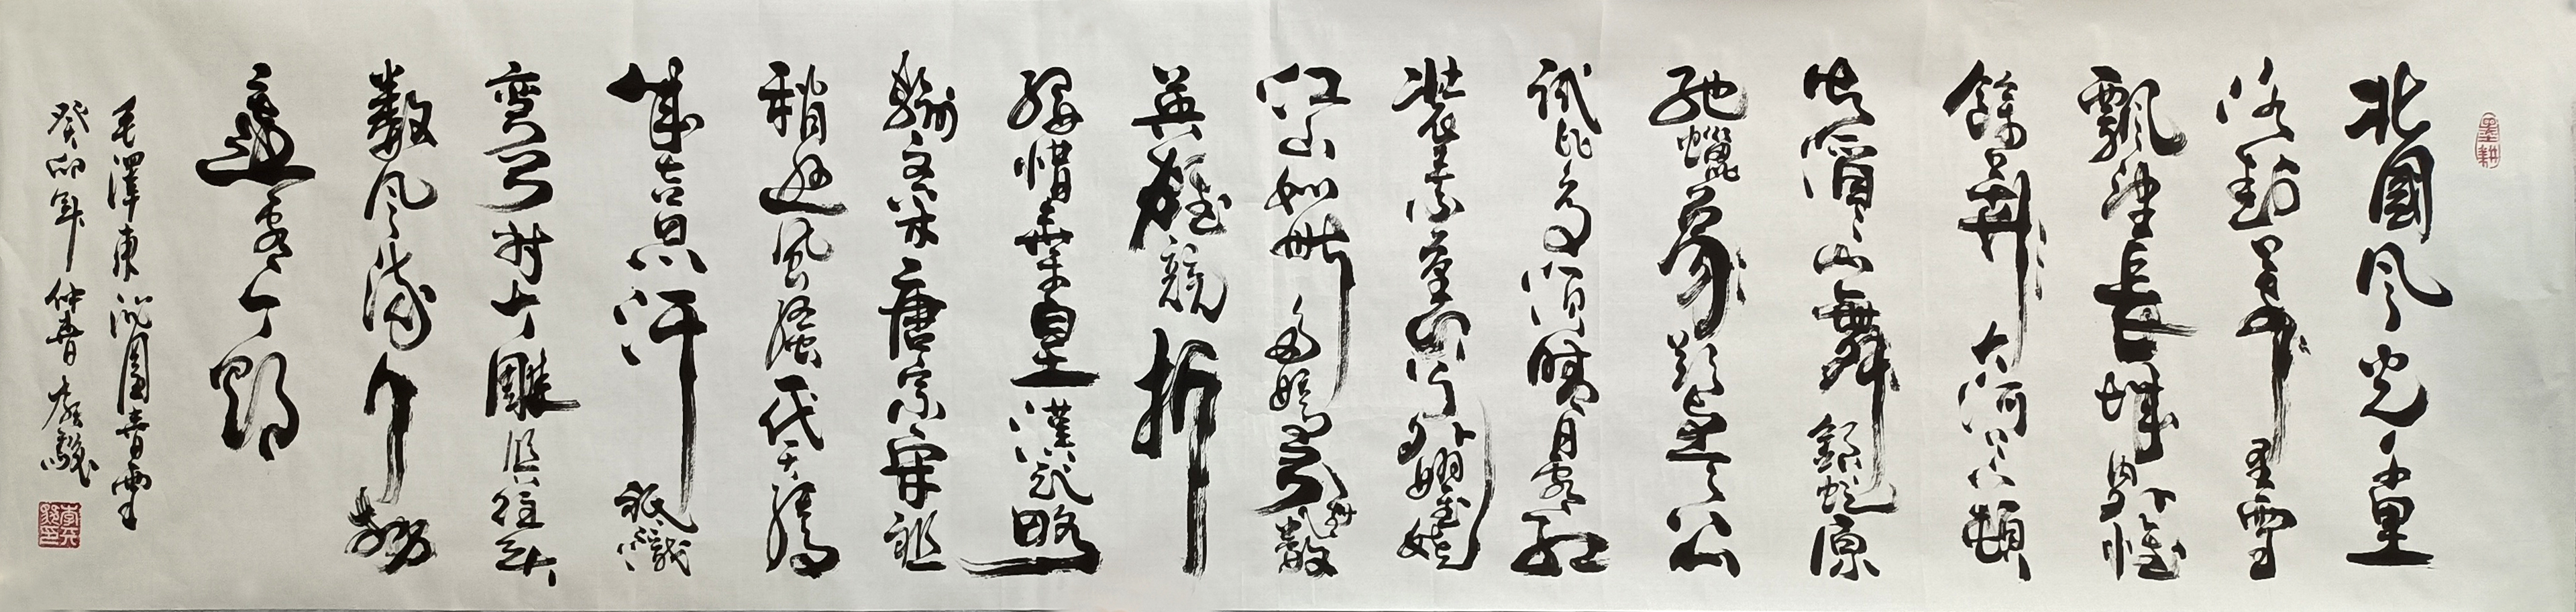 墨耕
北國风光千里
冰封萬里雪
飄望長城内外惟
餘莽莽大河上下頓
失滔滔山舞銀蛇原
馳蠟象欲與天公
試比高須晴日看紅
裝素裹分外妖嬈
江山如此多嬌引無數
英雄競折
腰惜秦皇漢武略
輸文采唐宗宋祖
稍遜風騷一代天驕
成吉思汗祇識
彎弓射大雕俱往矣
數风流人物
還看今朝
毛澤東沁園春雪
癸卯年仲春